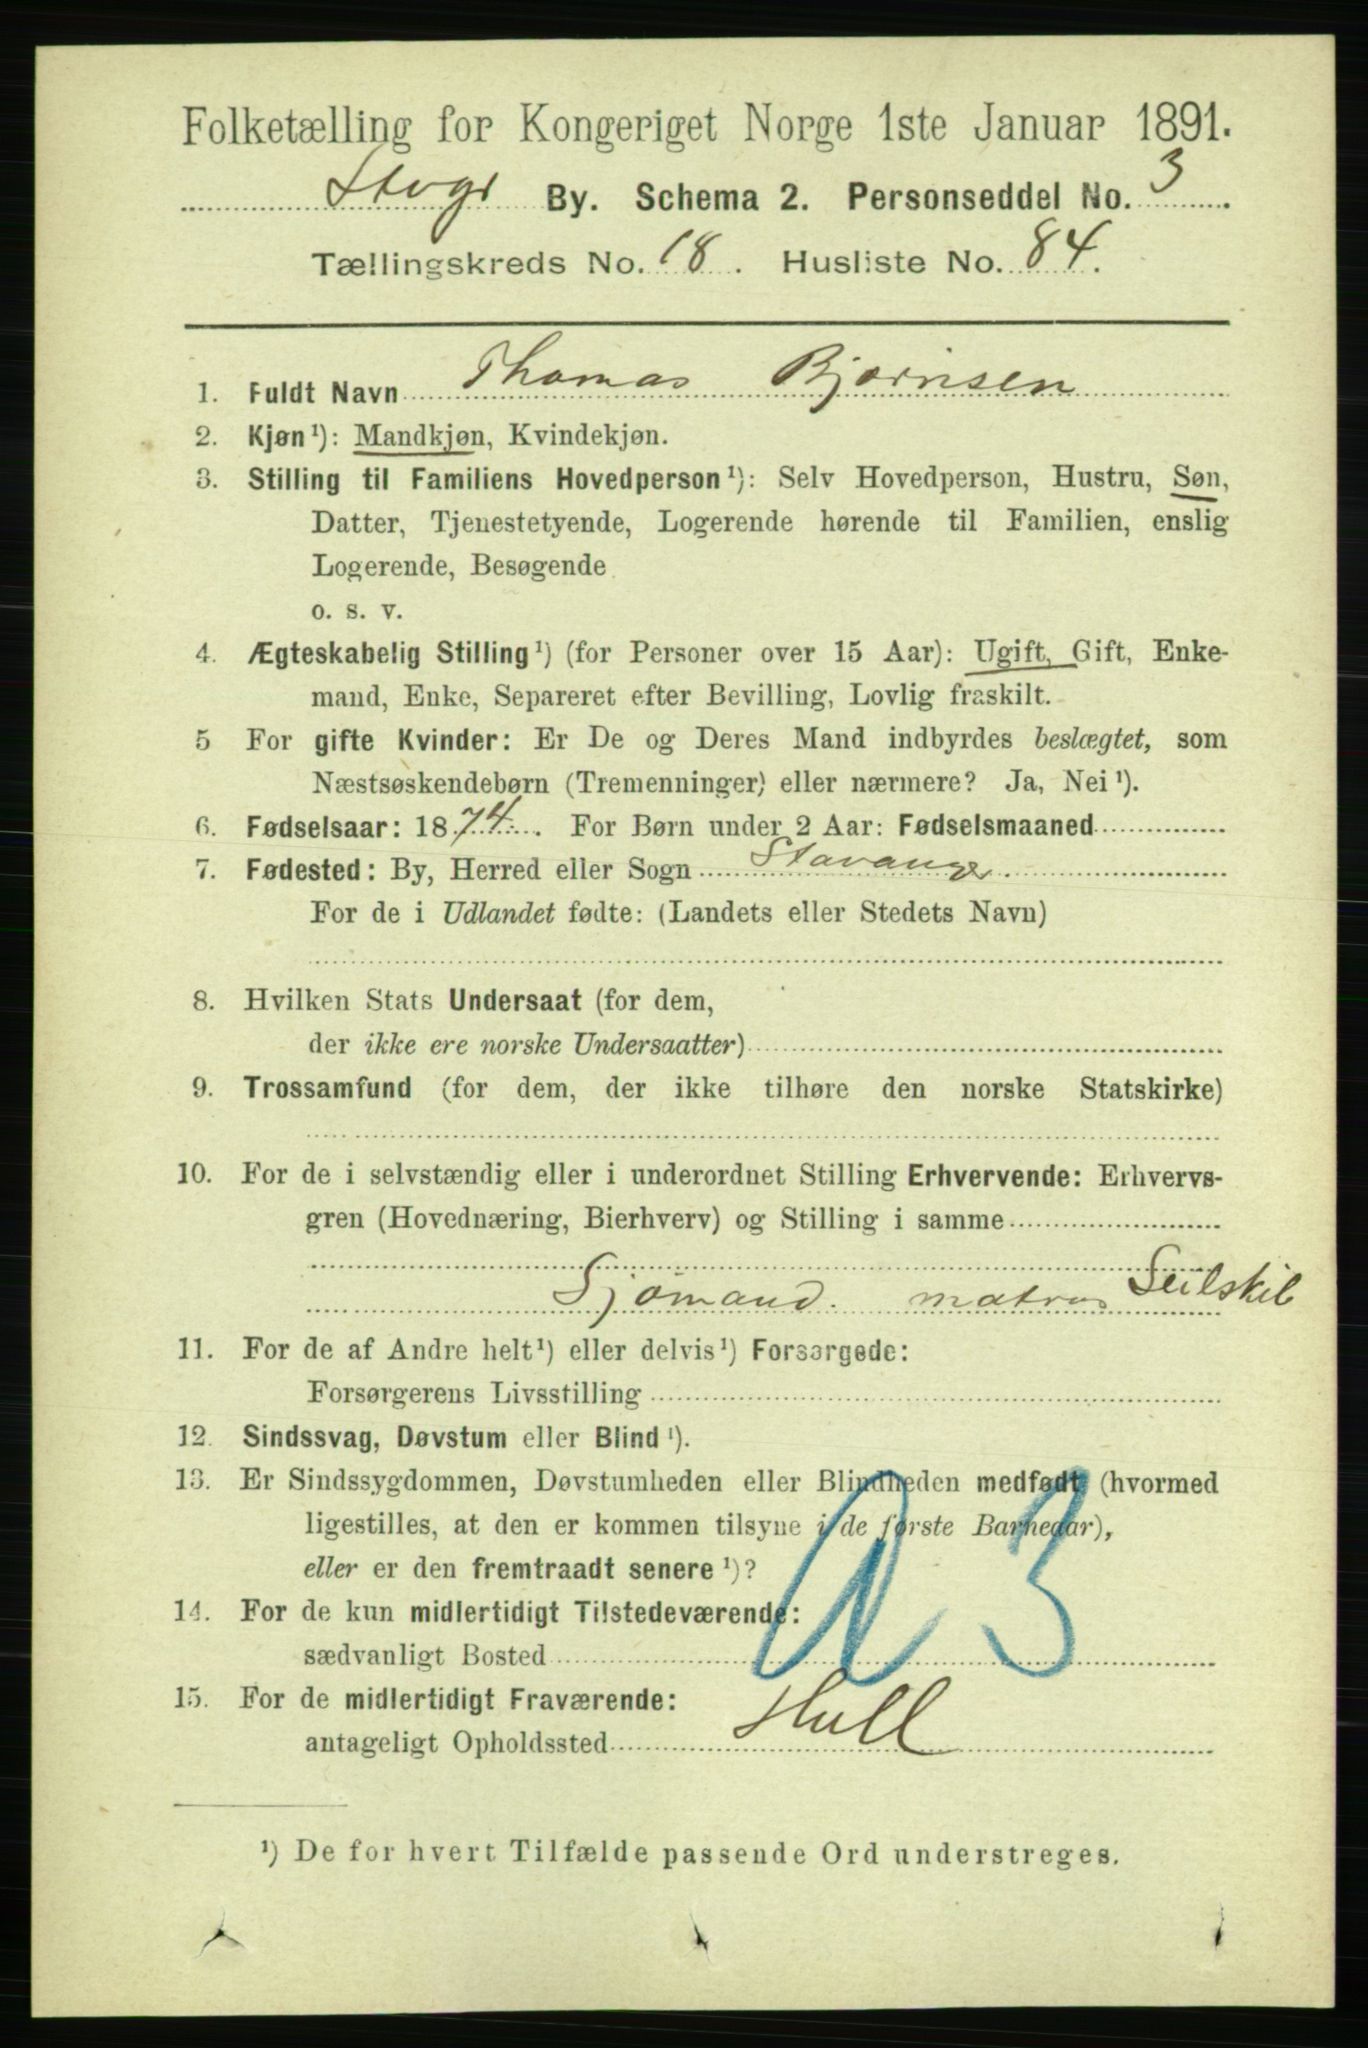 Folketælling for Kongeriget Norge 1ste Januar 1891.
Stvgr By. Schema 2. Personseddel No. 3.
Tællingskreds No. 18. Husliste No. 84.
1. Fuldt Navn Thomas Bjørnsen
2. Kjøn ¹): Mandkjøn, Kvindekjøn.
3. Stilling til Familiens Hovedperson ¹): Selv Hovedperson, Hustru, Søn,
Datter, Tjenestetyende, Logerende hørende til Familien, enslig
Logerende, Besøgende
o. s. v.
4. Ægteskabelig Stilling ¹) (for Personer over 15 Aar): Ugift, Gift, Enke-
mand, Enke, Separeret efter Bevilling, Lovlig fraskilt.
5 For gifte Kvinder: Er De og Deres Mand indbyrdes beslægtet, som
Næstsøskendebørn (Tremenninger) eller nærmere? Ja, Nei ¹).
6. Fødselsaar: 1874. For Børn under 2 Aar: Fødselsmaaned
7. Fødested: By, Herred eller Sogn Stavanger.
For de i Udlandet fødte: (Landets eller Stedets Navn)
8. Hvilken Stats Undersaat (for dem,
der ikke ere norske Undersaatter)
9. Trossamfund (for dem, der ikke tilhøre den norske Statskirke)
10. For de i selvstændig eller i underordnet Stilling Erhvervende: Erhvervs-
gren (Hovednæring, Bierhverv) og Stilling i samme
Sjømand. matros Seilskib
11. For de af Andre helt ¹) eller delvis ¹) Forsørgede:
Forsørgerens Livsstilling
12. Sindssvag, Døvstum eller Blind ¹).
13. Er Sindssygdommen, Døvstumheden eller Blindheden medfødt (hvormed
ligestilles, at den er kommen tilsyne i de første Barneaar),
eller er den fremtraadt senere ¹)?
14. For de kun midlertidigt Tilstedeværende:
sædvanligt Bosted
15. For de midlertidigt Fraværende:
antageligt Opholdssted Hull
¹) De for hvert Tilfælde passende Ord understreges.